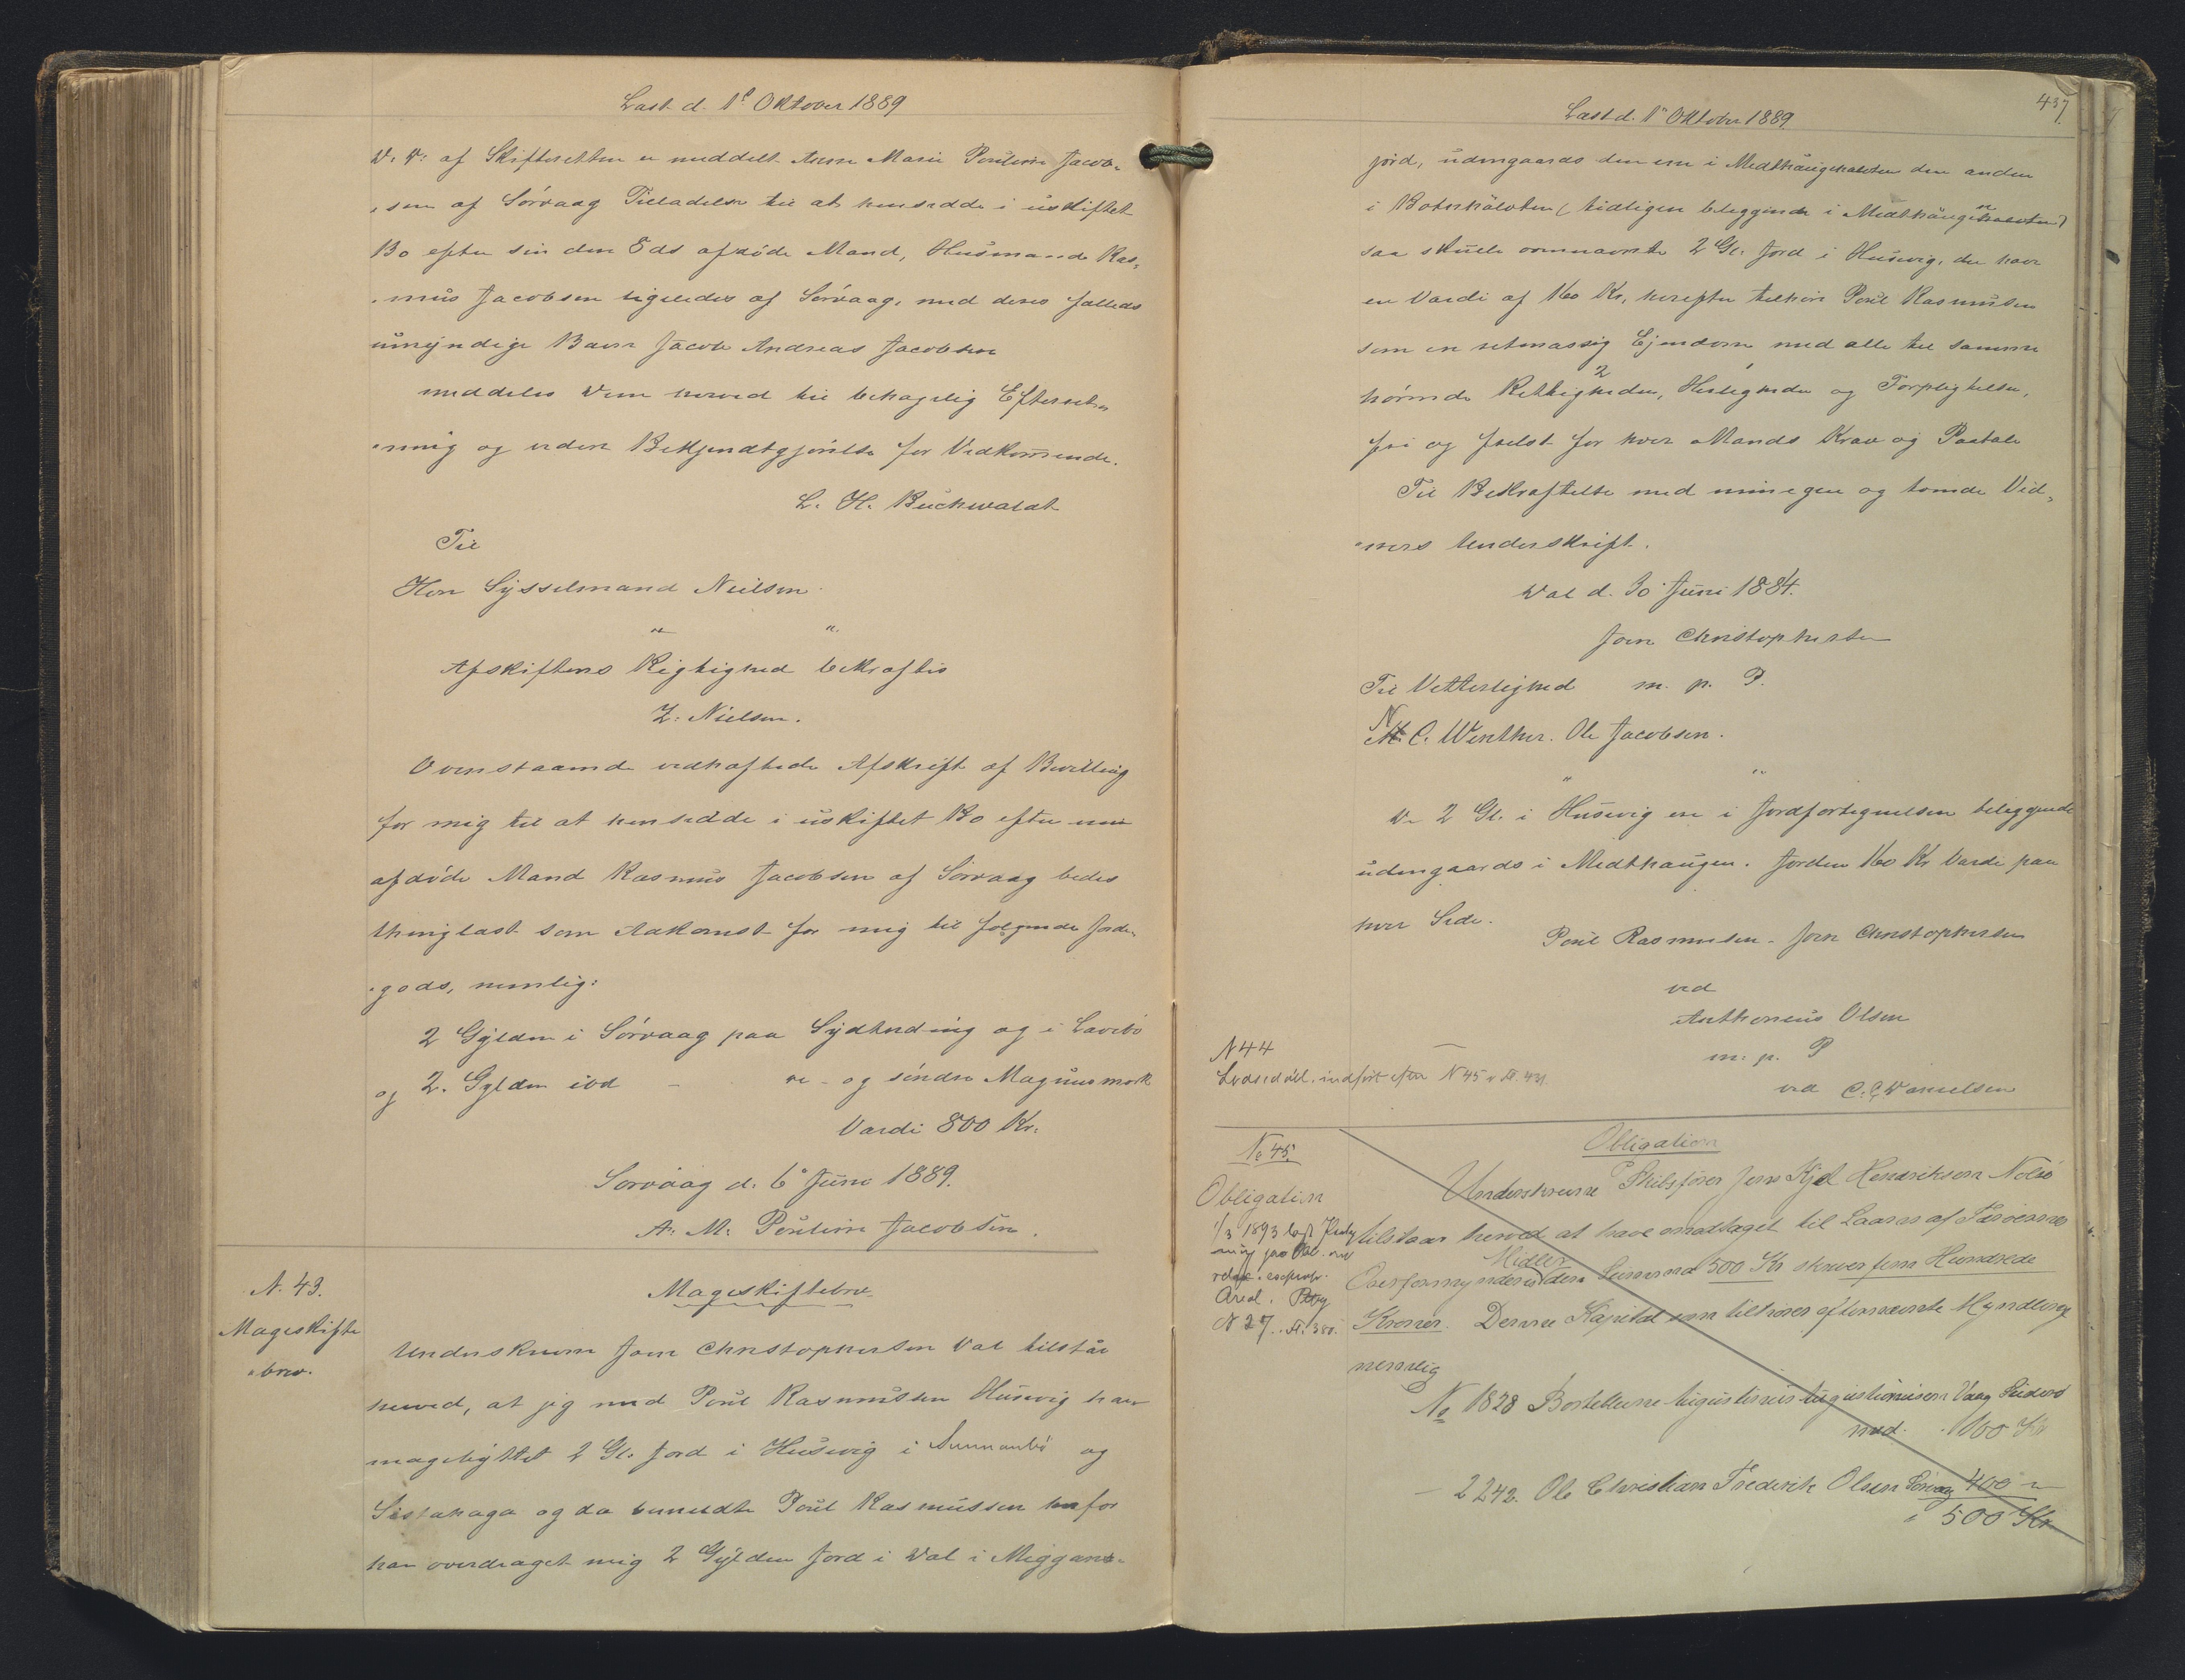 Læst d. 1e Oktober 1889
D: D: af Skifteretten er meddelt Anne Marie Pouline Jacob-
sen af Sörvaag Tilladelse til at hensidde i uskiftet
Bo efter sin den 8ds afdöde Mand, Husmand Ras-
mus Jacobsen ligeledes af Sörvaag, med deres fælleds
umÿndige Barn Jacob Andreas Jacobsen
meddeles Dem herved til behagelig Efterret-
ning og videre Bekjendtgjörelse for Vedkommende.
L. H. Buchwaldt
Til
Herr Sÿsselmand Nielsen
" "
Afskriftens Rigtighed bekræftes
Z: Nielsen.
Ovenstaaende vedhæftede Afskrift af Bevilling
for mig til at hensidde i uskiftet Bo efter min
afdöde Mand Rasmus Jacobsen af Sörvaag bedes
thinglæst som Adkomst for mig til følgende Jorde-
gods, nemlig:
2 Gÿlden i Sörvaag paa Sÿdtending og i Lavebö
og 2. Gylden ibd - - og söndre Magnus mork
Værdi 800 Kr.
Sorvaag d. 6 Juni 1889.
A. M. Pouline Jacobsen.
N. 43.
Mageskifte
brev.
Mageskiftebrev
Underskrevne Joen Christophersen Dal tilstår
herved, at jeg med Poul Rasmussen Husevig har
magebÿttet 2 Gl. Jord i Husevig i Sunnanbö og
Sistahaga og da bemeldte Poul Rasmussen herfor
har overdraget mig 2 Gÿlden Jord i Dal i Miggan-
437
Læst d. 1e Oktober 1889
jord, udengaards den ene i Medthaugehalvten den anden
i Boterhålvten (tidligen beleggende i Medthaugehalvten)
saa skulle ovennævnte 2 Gl. Jord i Husevig, der have
en Værdi af 160 Kr, herefter tilhøre Poul Rasmussen
som en retmæssig Ejendom med alle til samme
hörende Rettigheder, Herligheder og Forpligtelser,
fri og frelst for hver Mands Krav og Paatale
Til Bekræftelse med min egen og tvende Vid-
ners Underskrift.
Dal d. 30 Juni 1884.
Joen Christophersen
Til Vitterlighed m. p. P.
N. C. Winther. Ole Jacobsen.
" "
De 2 Gl. i Husevig ere i Jordfortegnelsen beleggende
udengaards i Medthaugen. Jorden 160 Kr Værdi paa
hver Side.
Poul Rasmussen - Joen Christophersen
ved
Anthonius Olsen
m. p. P
ved C. C. Danielsen
N 44
indført efter N 45
No 45.
Obligation
1/3 1893
N 27. Fl. 380.
Obligation
Underskrevne Skibsfører Jens Kjel Hendriksen Nolsö
tilstaar herved at have modtaget til Laans af Færøernes
Overformynderi Midler den Summa 500 Kr skriver fem Hundrede
Kroner. Denne Kapital som tilhører efternævnte Myndlinge
nemlig
No 1828 Bortebleune Augustinus Augustinussen Vaag Suderö
med. 100 Kr
- 2242. Ole Christian Frederik Olsen Sörvaag 400 "
" 500 Kr